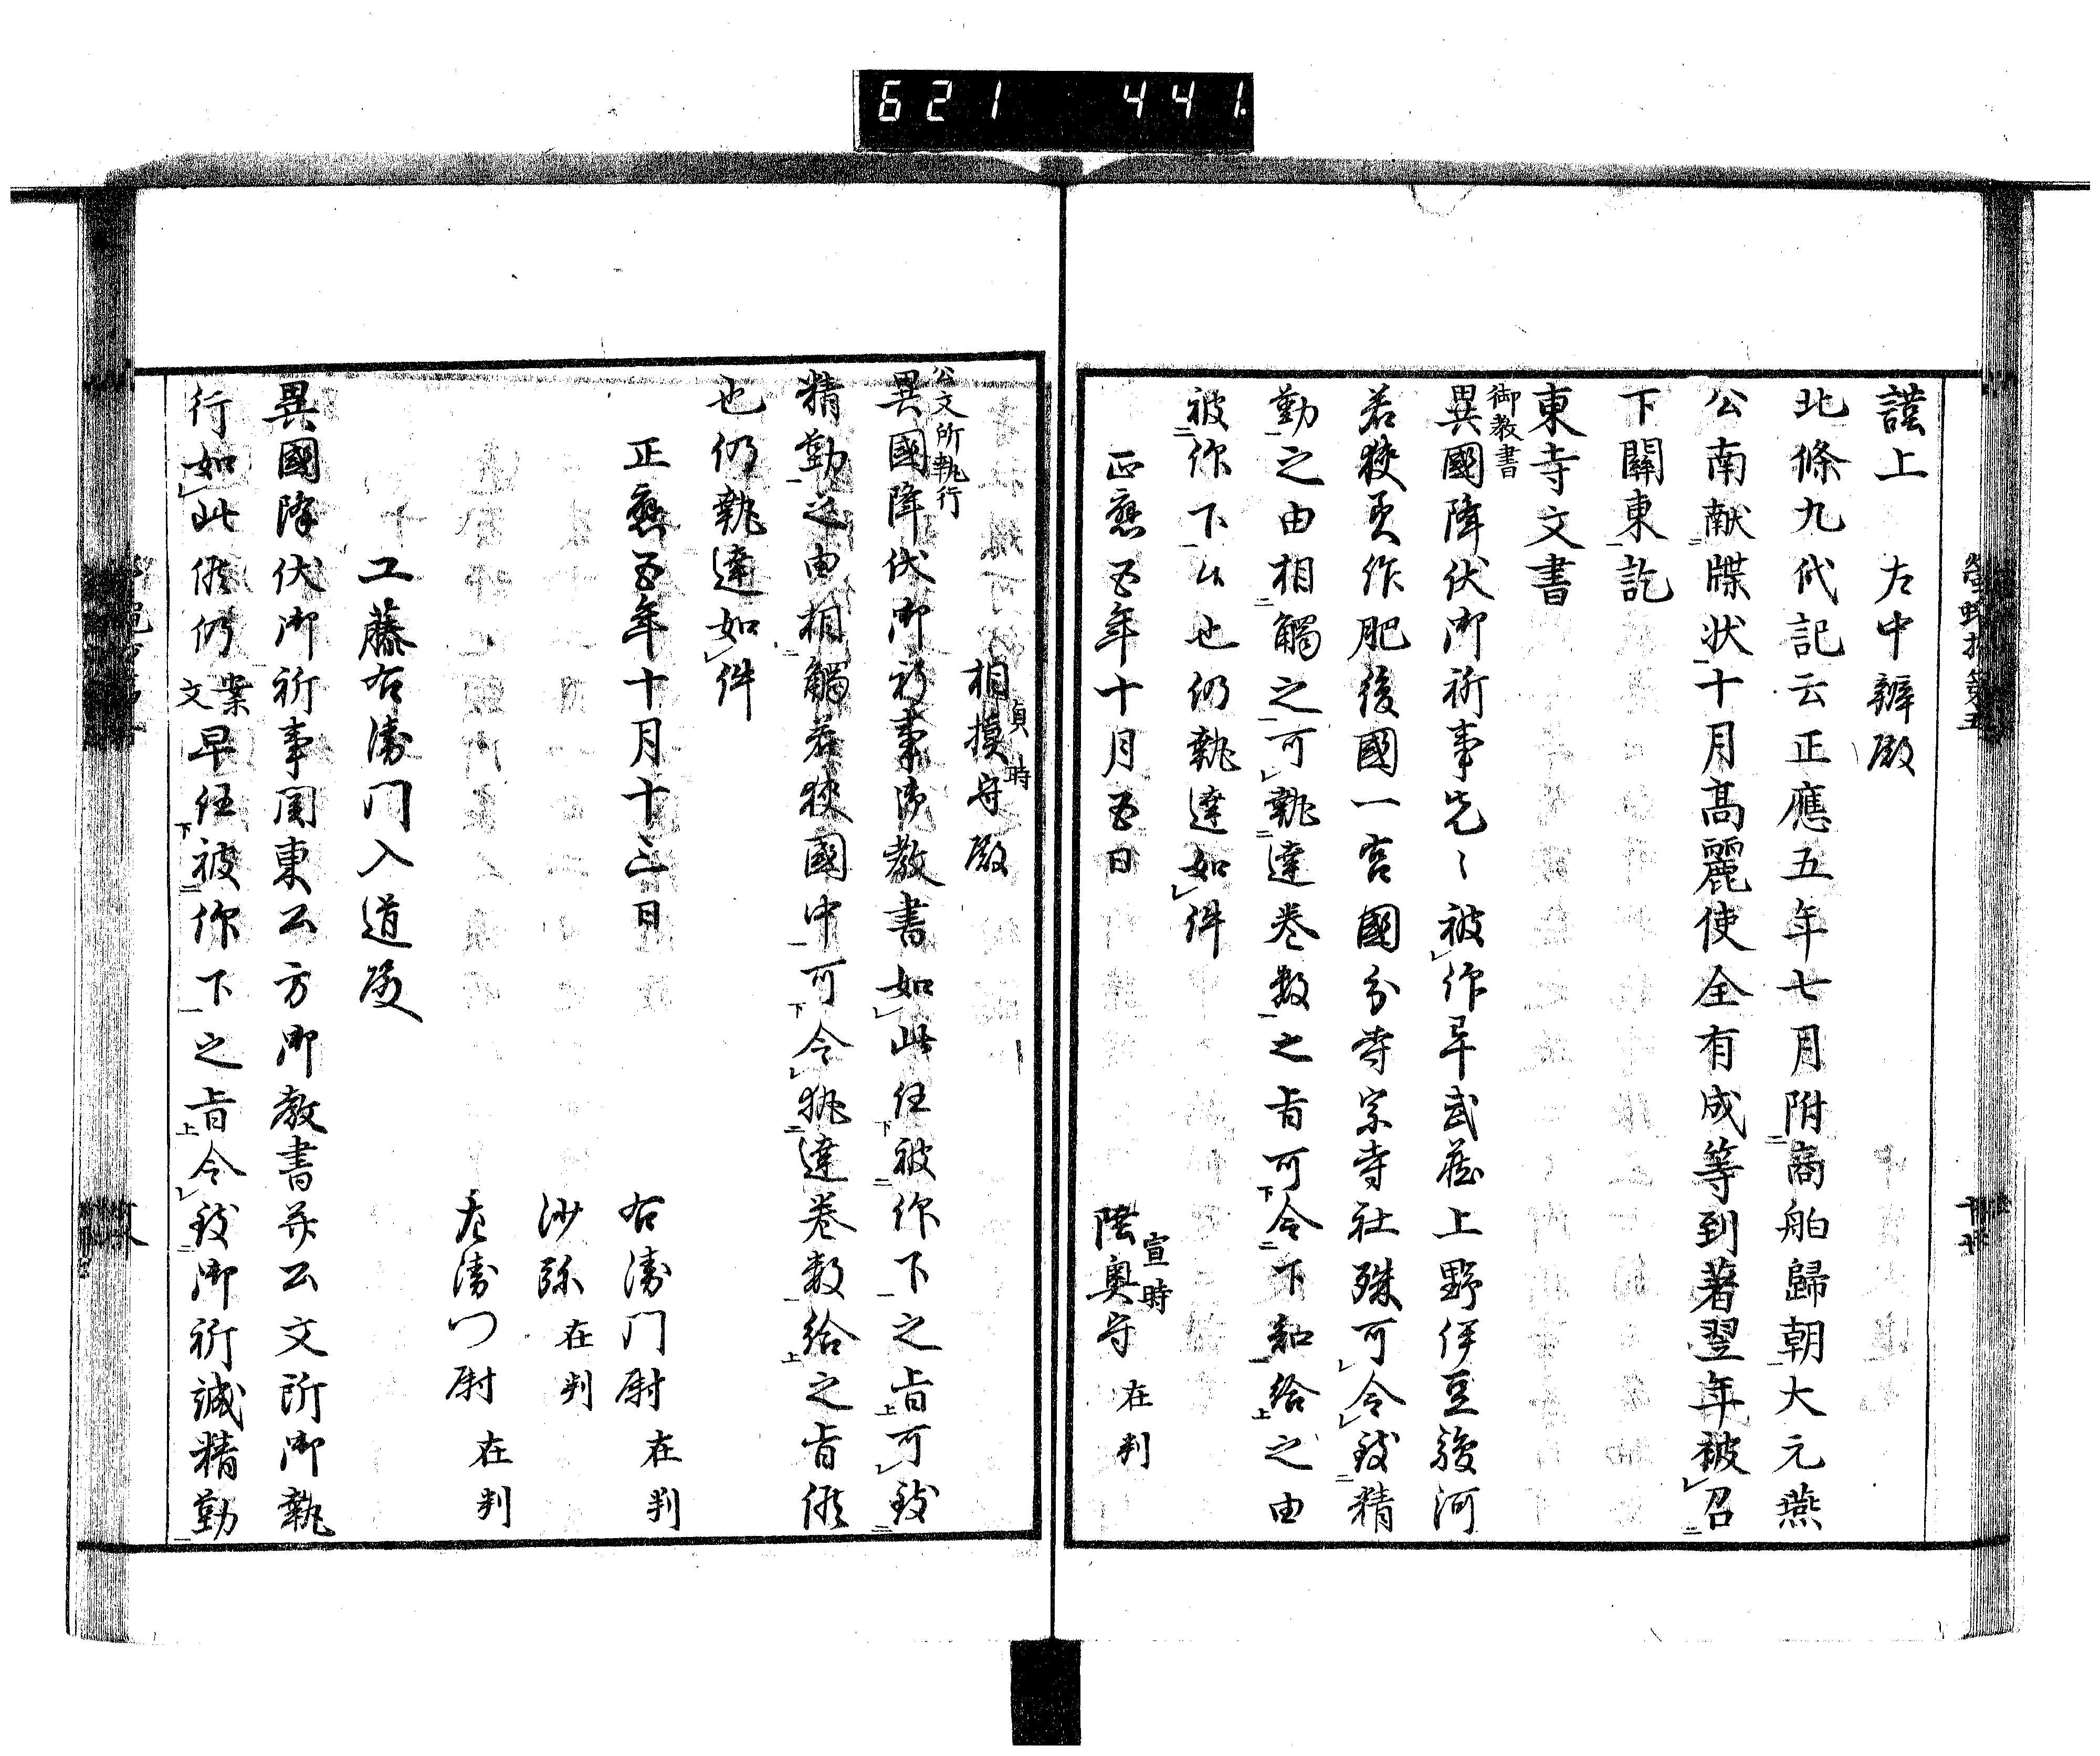 621 441
謹上 左中辨殿
北條九代記云正應五年七月附商舶歸朝大元燕
公南献牒状十月高麗使全有成等到著翌年被召
下關東訖
東寺文書
御教書
異國降伏御祈事先〻被仰畢武藏上野伊豆駿河
若狹美作肥後國一宮國分寺宗寺社殊可令致精
勤之由相觸之可執達巻数之旨可令下知給之由
被仰下候也仍執達如件
正應五年十月五日 陸奥守 宣時 在判
相摸守殿 貞時
公文所執行
異國降伏御祈事御教書如此任被仰下之旨可致
精勤之由相觸若狹國中可令執達巻数給之旨候
也仍執達如件
正應五年十月十三日 右衛门尉 在判
沙弥 在判
左衛门尉 在判
工藤右衛门入道殿
異國降伏御祈事関東公方御教書并公文所御執
行如此候仍案文早任被仰下之旨令致御祈誠精勤